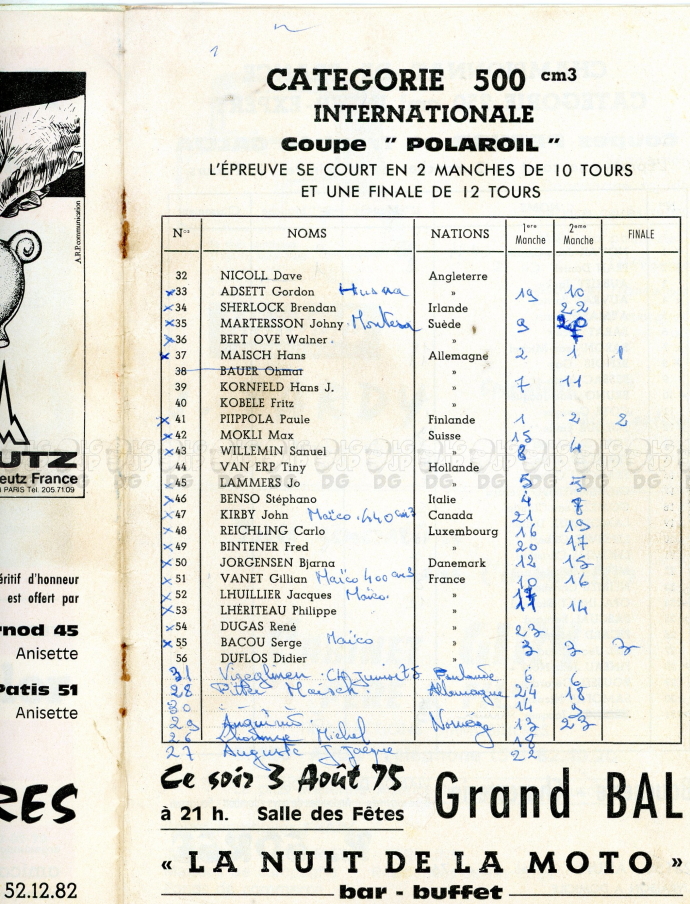 CATEGORIE 500 cm3
INTERNATIONALE
Coupe " POLAROIL "
L'ÉPREUVE SE COURT EN 2 MANCHES DE 10 TOURS
ET UNE FINALE DE 12 TOURS
Nos NOMS NATIONS 1ere Manche 2eme Manche FINALE
32 NICOLL Dave Angleterre
x 33 ADSETT Gordon Husma » 19 10
x 34 SHERLOCK Brendan Irlande 22
x 35 MARTERSSON Johny Montesa Suède 9 20
x 36 BERT OVE Walner »
x 37 MAISCH Hans Allemagne 2 1 1
38 BAUER Ohmar »
39 KORNFELD Hans J. » 7 11
40 KOBELE Fritz »
x 41 PIIPPOLA Paule Finlande 1 2 2
x 42 MOKLI Max Suisse 15
x 43 WILLEMIN Sanuel » 8 4
44 VAN ERP Tiny Hollande
x 45 LAMMERS Jo » 5 5
x 46 BENSO Stéphano Italie 4 8
x 47 KIRBY John Maïco 440 cm3 Canada 21
x 48 REICHLING Carlo Luxembourg 16 19
x 49 BINTENER Fred » 20 17
x 50 JORGENSEN Bjarna Danemark 12 15
x 51 VANET Gillian Maïco 400 cm3 France 10 16
x 52 LHUILLIER Jacques Maïco. »
x 53 LHÉRITEAU Philippe » 11 14
x 54 DUGAS René » 23
x 55 BACOU Serge Maïco » 3 3 3
56 DUFLOS Didier »
31 6 6
28 Maisch. Allemagne 24 18
30 14 9
29 Norvég 13 23
26 Lhomme Michel 18
27 Auguste J Jacque 22
Ce soir 3 Août 75
à 21 h. Salle des Fêtes
Grand BAL
« LA NUIT DE LA MOTO »
bar - buffet
A.R.P. communication
UTZ
eutz France
PARIS Tél. 205.71.09
éritif d'honneur
est offert par
rnod 45
Anisette
Patis 51
Anisette
RES
52.12.82
DG DG DG DG DG DG